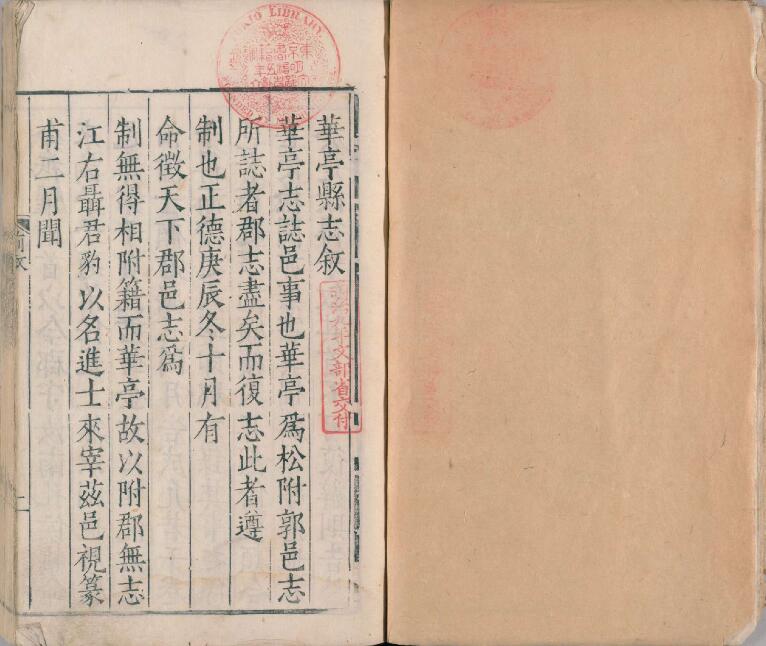 華亭縣志敘
華亭志誌邑事也華亭爲松附郭邑志
所誌者郡志盡矣而復志此者遵
制也正德庚辰冬十月有
命徵天下郡邑志爲
制無得相附籍而華亭故以附郡無志
江右聶君豹以名進士來宰茲邑視篆
甫二月聞
明治九年文部省交付
TOKIO LIBRARY